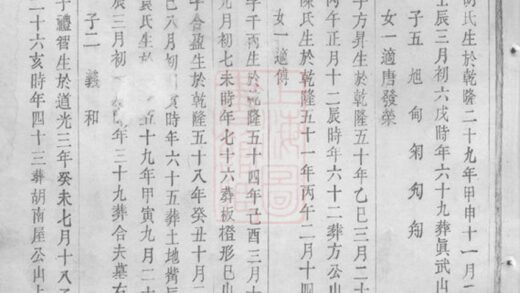 胡氏生於乾隆二十九年甲申十一月二
壬辰三月初六戌時年六十九葬眞武山
子五 旭 甸 匊
女一適唐發榮
子方昇生於乾隆五十年乙巳三月二
丙午正月十二辰時年六十二葬方公山
陳氏生於乾隆五十一年丙午二月十四
女一適傅
子干丙生於乾隆五十四年己酉三月十
元月初七未時年七十六葬板橙形巳山
子合盈生於乾隆五十八年癸丑十月
巳八月初時年六十五葬土地嘴辰
袁氏生於五十九年甲寅九月二
辰三月初年三十九葬合夫墓右
子二 義 和
子禮智生於道光三年癸未七月十八
二十六亥時年四十三葬胡南屋公山上